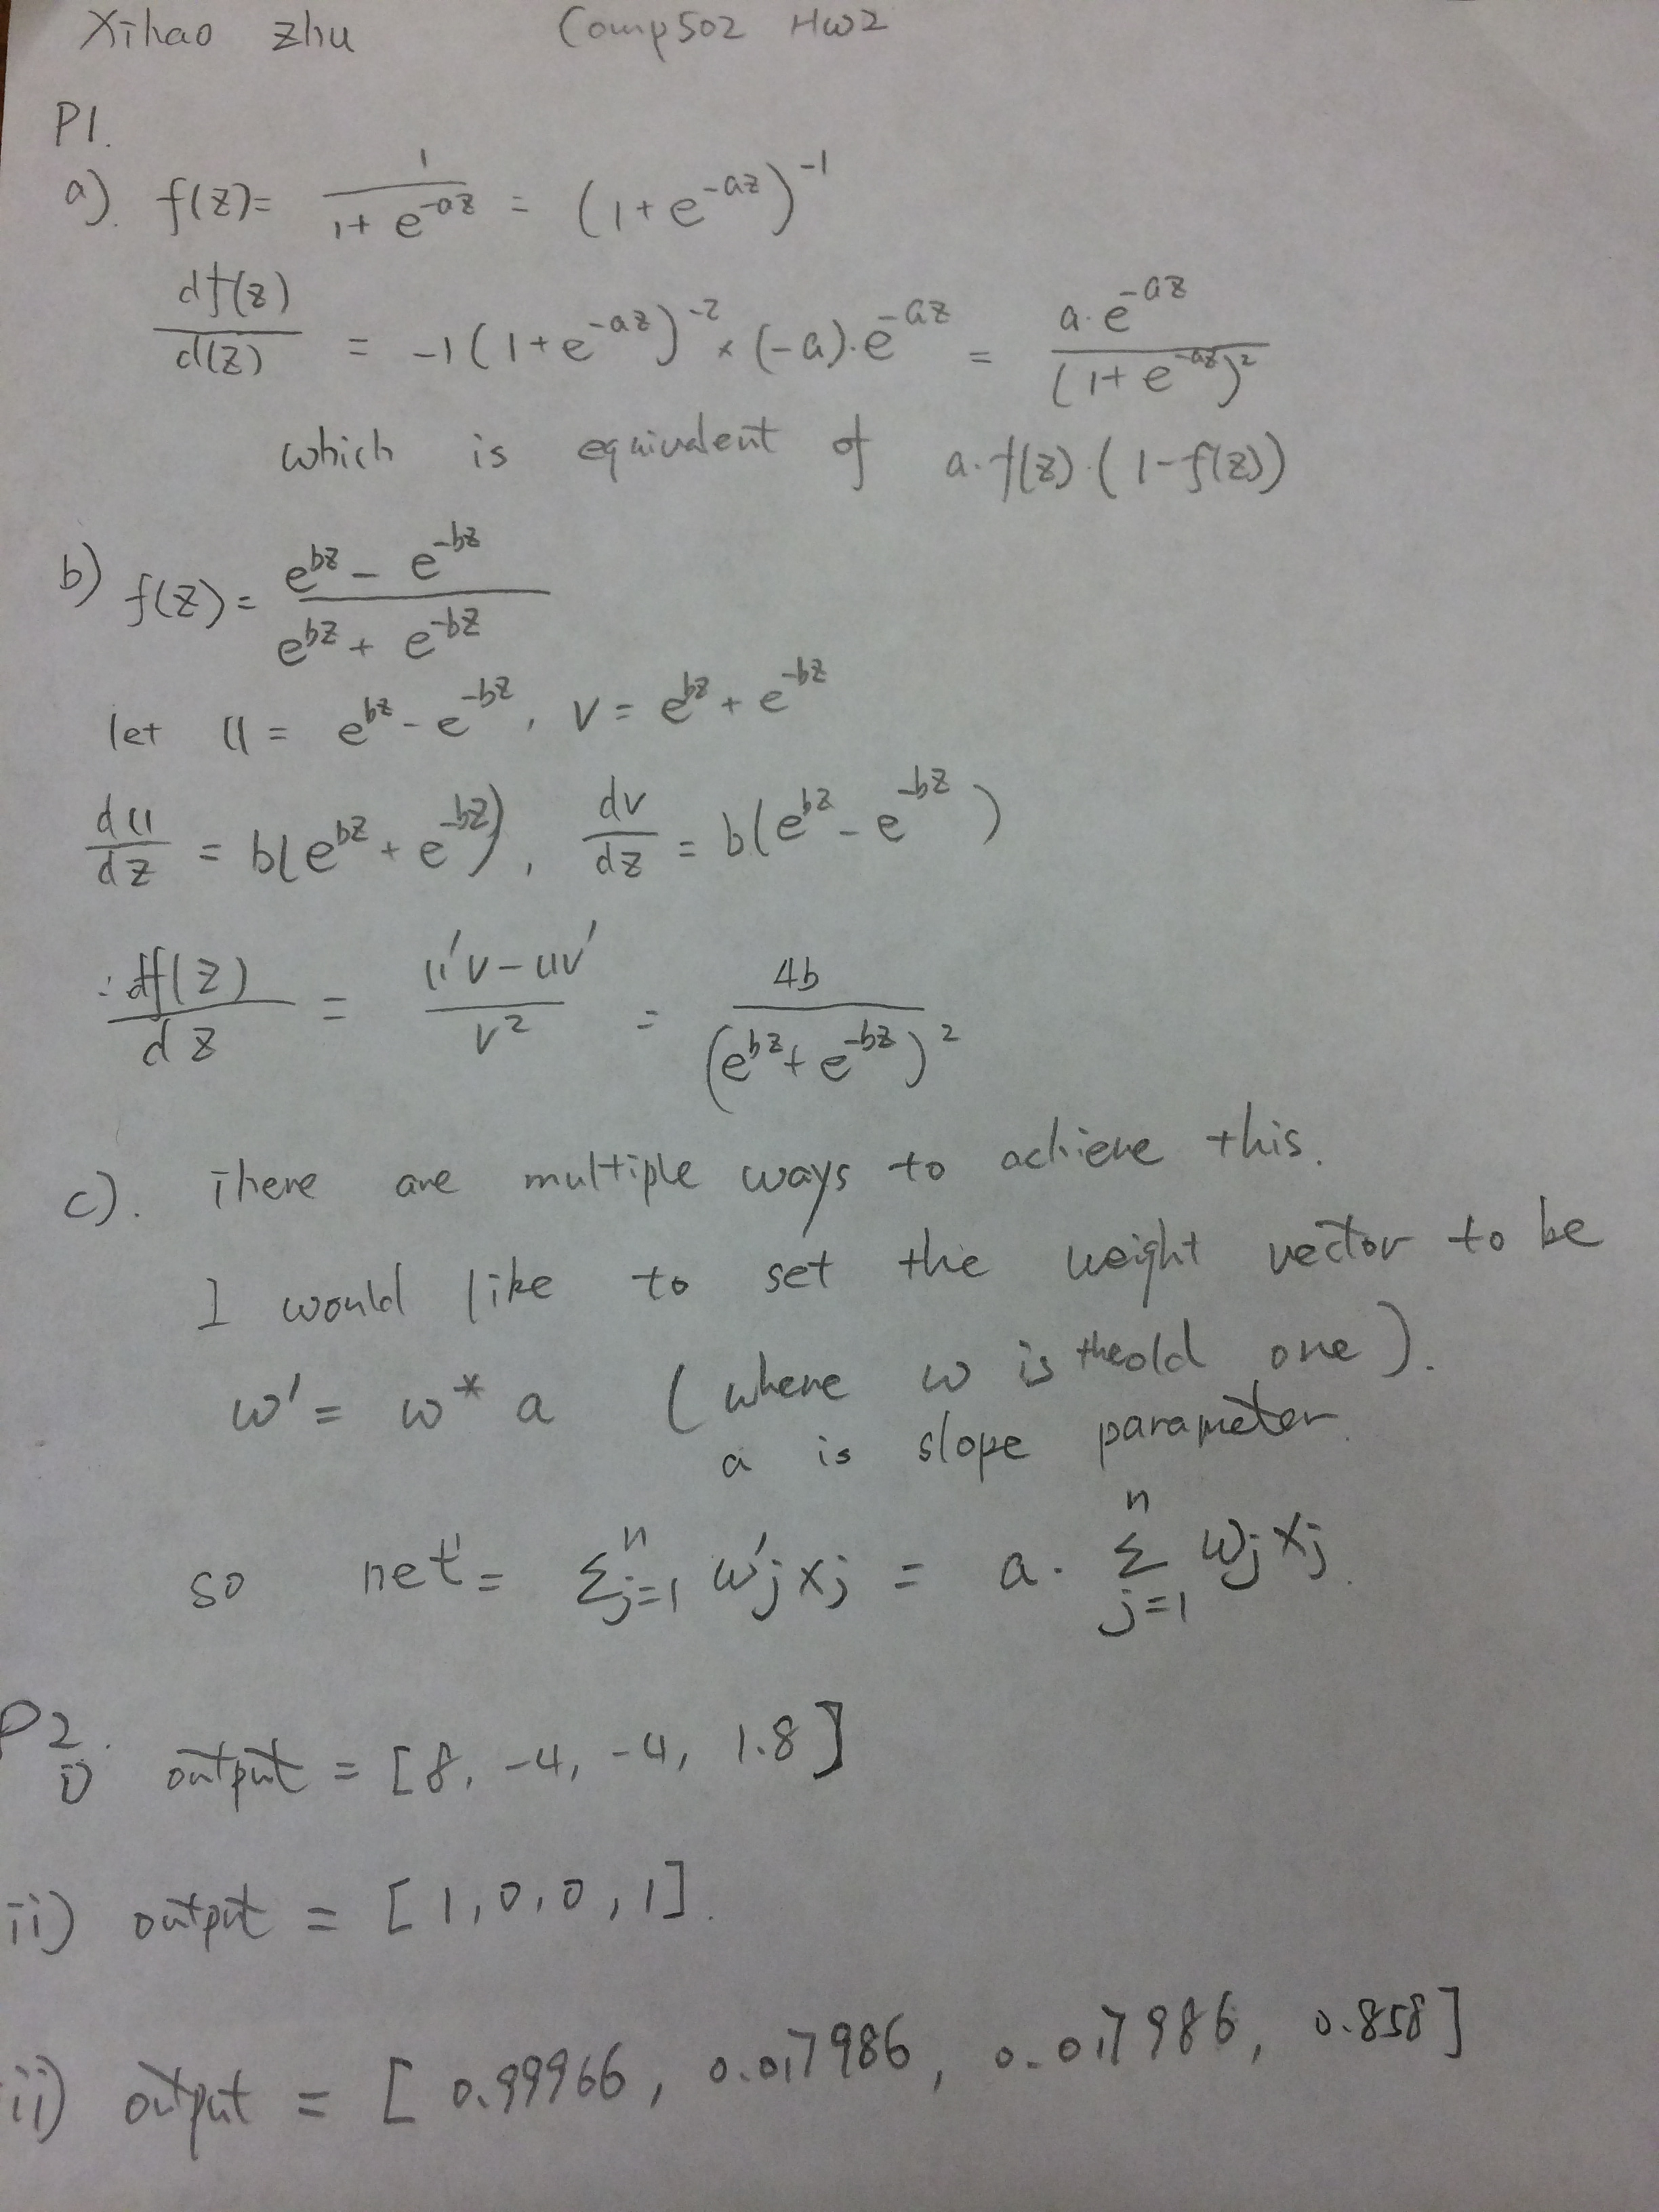 Xihao Zhu Comp502 HW2
P1.
a). f(z) = 1 / (1 + e^{-az}) = (1 + e^{-az})^{-1}
df(z) / d(z) = -1 (1 + e^{-az})^{-2} × (-a) · e^{-az} = a · e^{-az} / (1 + e^{-az})^2
which is equivalent of a · f(z) · (1 - f(z))
b) f(z) = (e^{bz} - e^{-bz}) / (e^{bz} + e^{-bz})
let u = e^{bz} - e^{-bz}, v = e^{bz} + e^{-bz}
du / dz = b(e^{bz} + e^{-bz}), dv / dz = b(e^{bz} - e^{-bz})
: df(z) / dz = (u'v - uv') / v^2 = 4b / (e^{bz} + e^{-bz})^2
c). There are multiple ways to achieve this.
I would like to set the weight vector to be
w' = w * a (where w is the old one).
a is slope parameter.
so net' = Σ_{j=1}^{n} w'j xj = a · Σ_{j=1}^{n} wj xj.
P2.
i) output = [8, -4, -4, 1.8]
ii) output = [1, 0, 0, 1].
ii) output = [0.99966, 0.017986, 0.017986, 0.858]